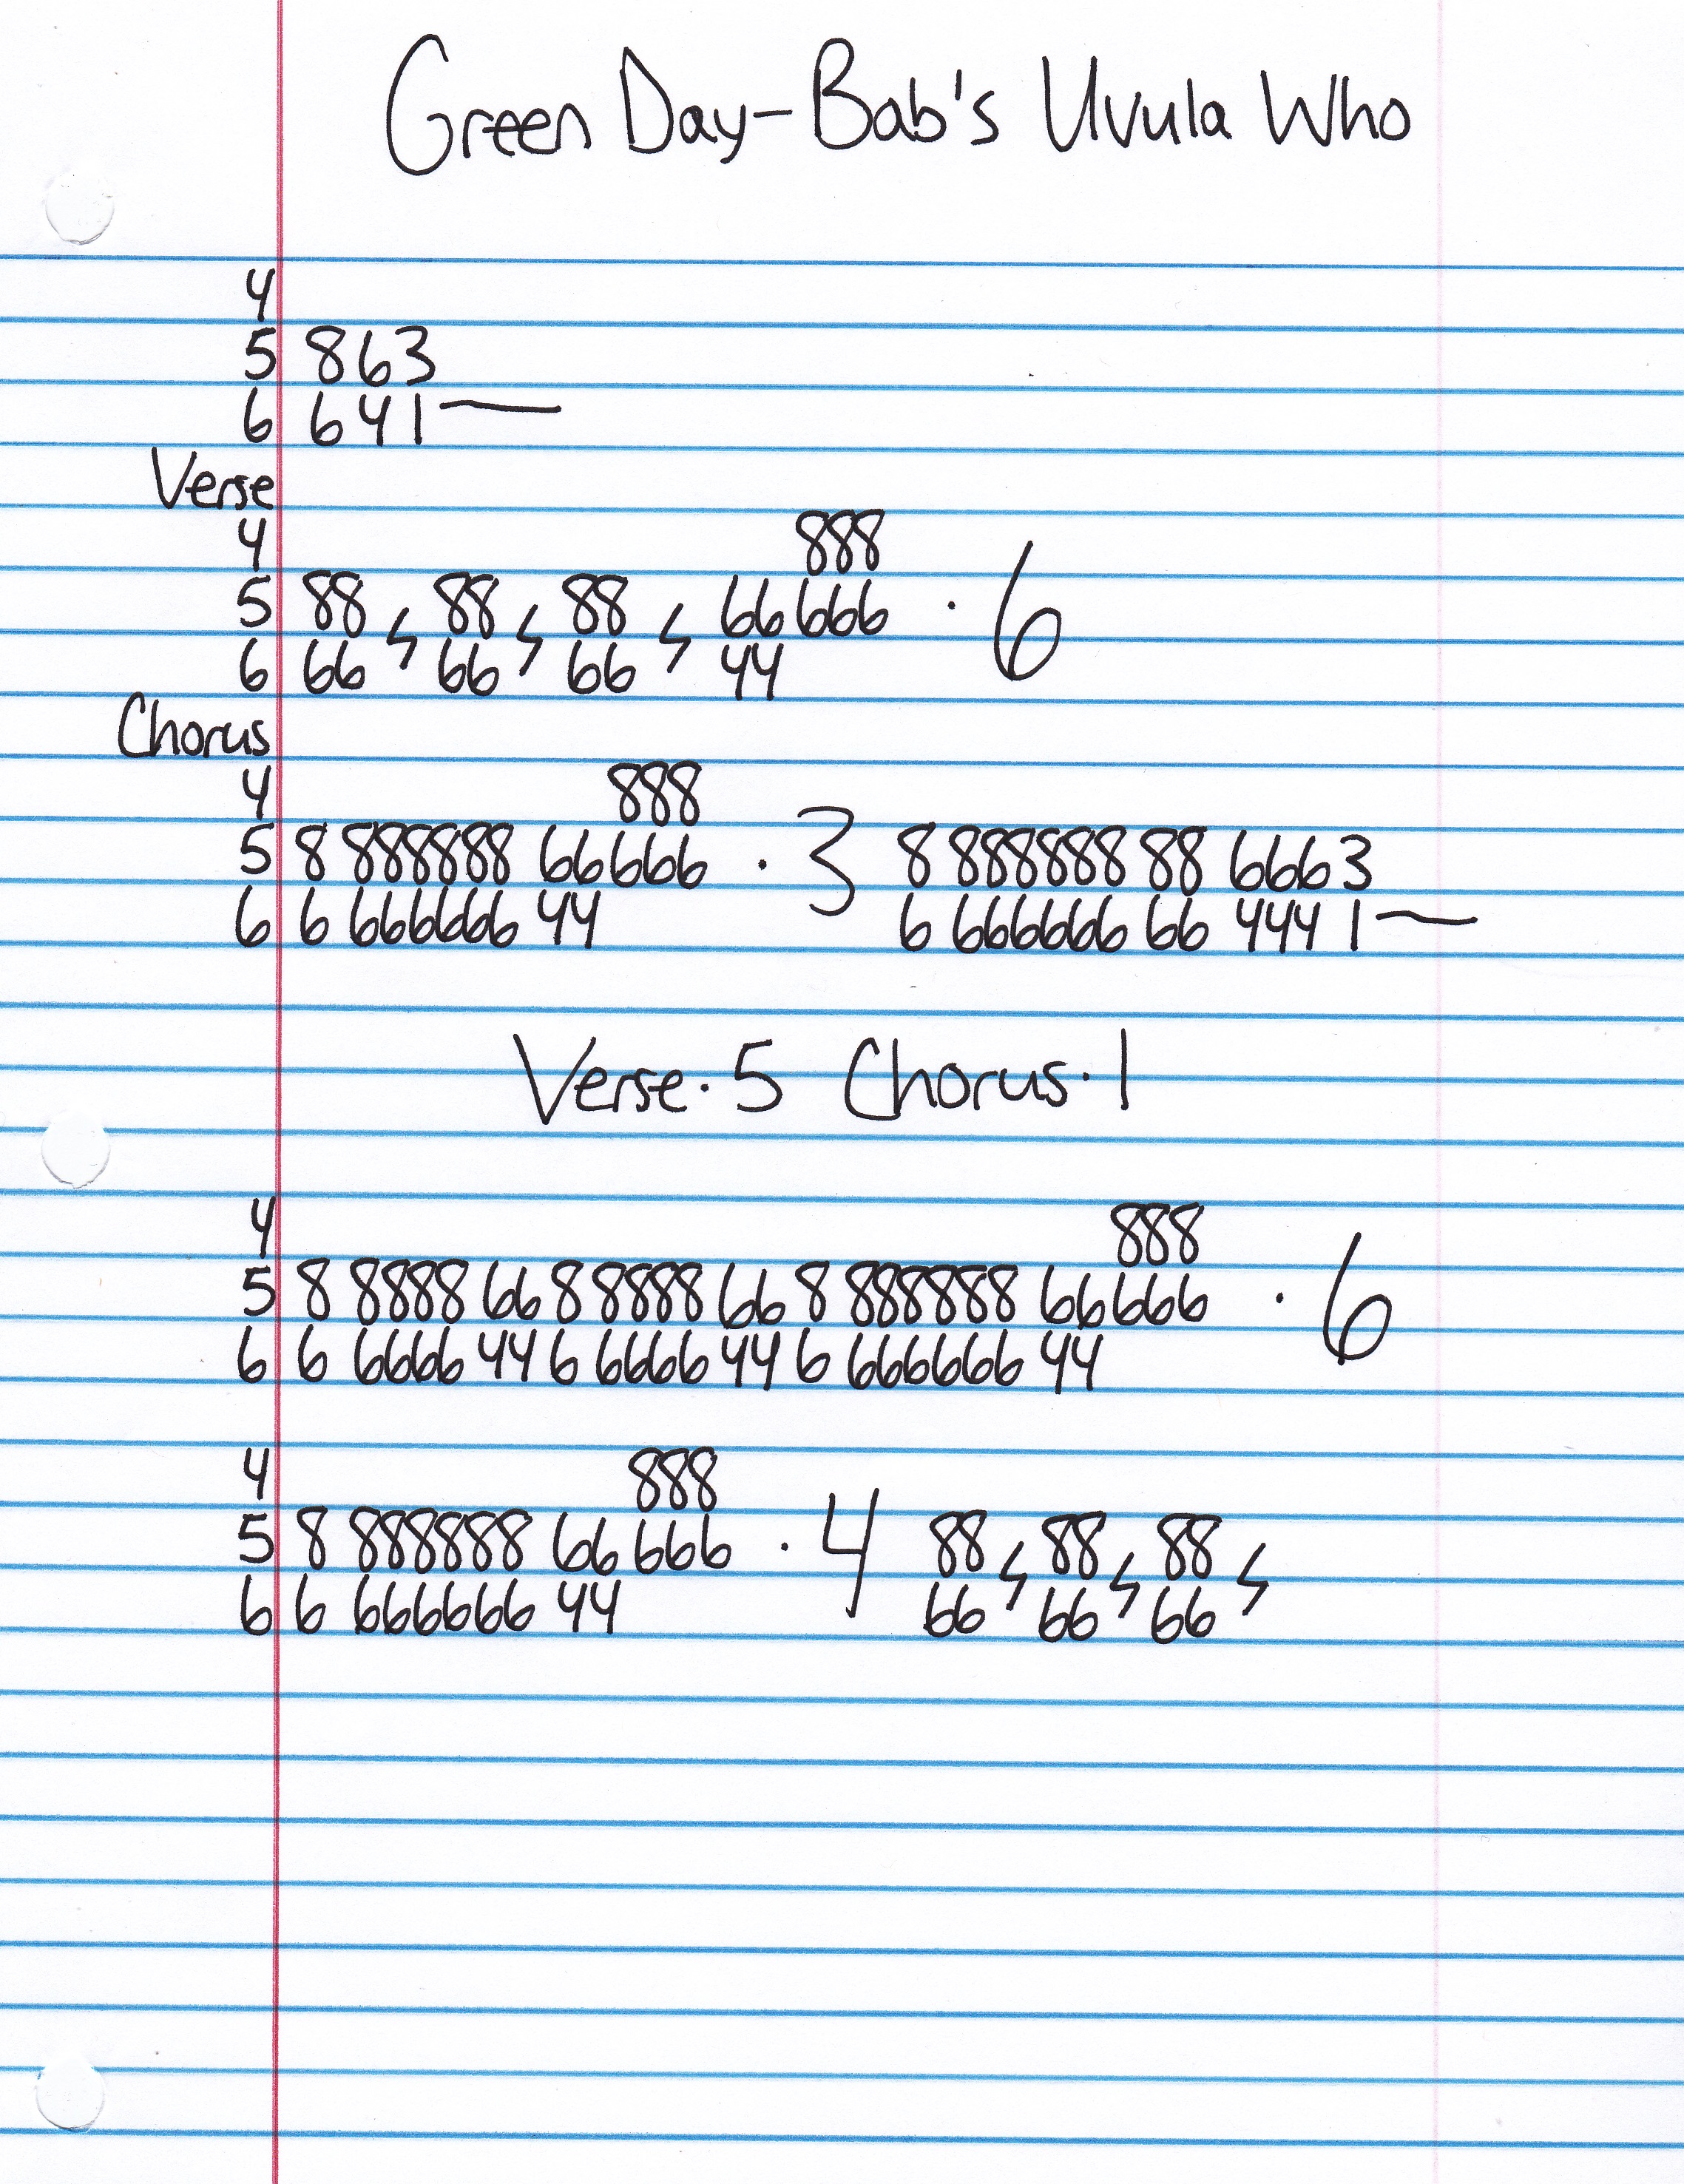 Green Day - Bab's Uvula Who
4
5 863
6 641—
Verse
4 888
5 88 88 88 66 666 · 6
6 66 66 66 44
Chorus
4 888
5 8 888888 66666 · 3 8 888888 88 6663
6 6 666666 44 6 666666 66 444 1—
Verse · 5 Chorus · 1
4 888
5 8 8888 66 8 8888 66 8 888888 66666 · 6
6 6 6666 44 6 6666 44 6 666666 44
4 888
5 8 888888 66 666 · 4 88 88 88
6 6 666666 44 66 66 66